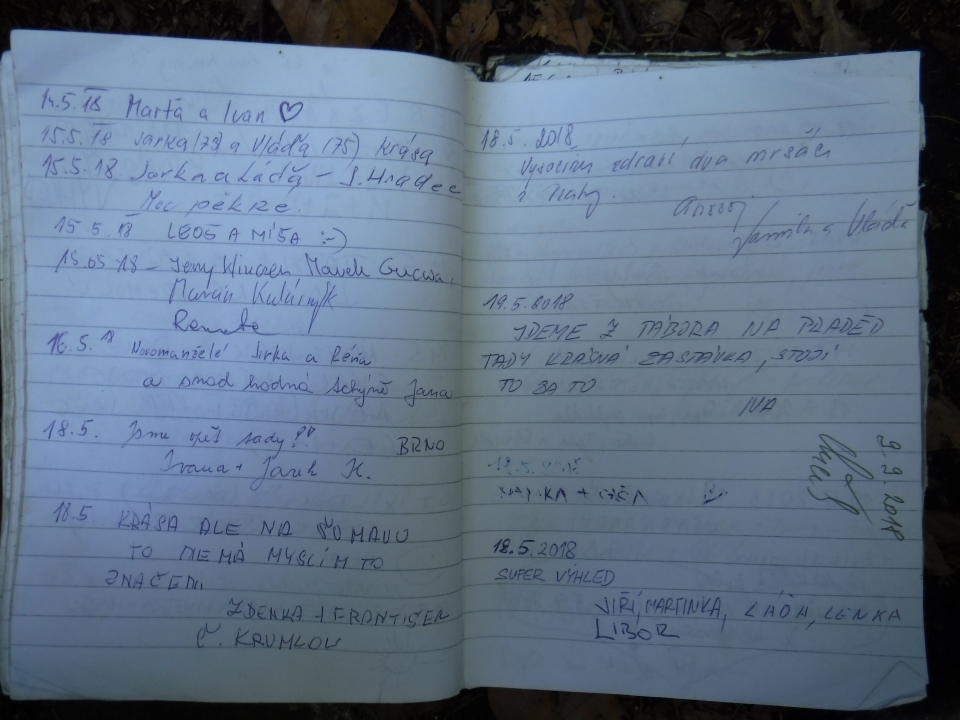 14.5.18 Marta a Ivan ♡
15.5.18 Jarka (73) a Vláďa (75) Krása
15.5.18 Jarka a Láďa – J. Hradec
Moc pěkné.
15 5.18 LEOŠ A MÍŠA :-)
15.05.18 – Jerzy Marek
Marcin
Renata
16.5.18 Novomanželé Jirka a Réňa
a snad hodná tchýně Jana
18.5. Jsme opět tady!! BRNO
Ivana + Jarek K.
18.5 KRÁSA ALE NA ŠUMAVU
TO NEMÁ MYSLÍM TO
ZNAČENÍ
ZDENKA + FRANTIŠEK
Č. KRUMLOV
18.5. 2018
Vysočinu zdraví dva mrzáci
z Prahy.
Jarmila a Vláďa
19.5.2018
JDEME Z TÁBORA NA PRADĚD
TADY KRÁSNÁ ZASTÁVKA, STOJÍ
TO ZA TO
IVA
9.9.2018
18.5.2018
SUPER VÝHLED
JIŘÍ, MARTINKA, LÁĎA, LENKA
LIBOR